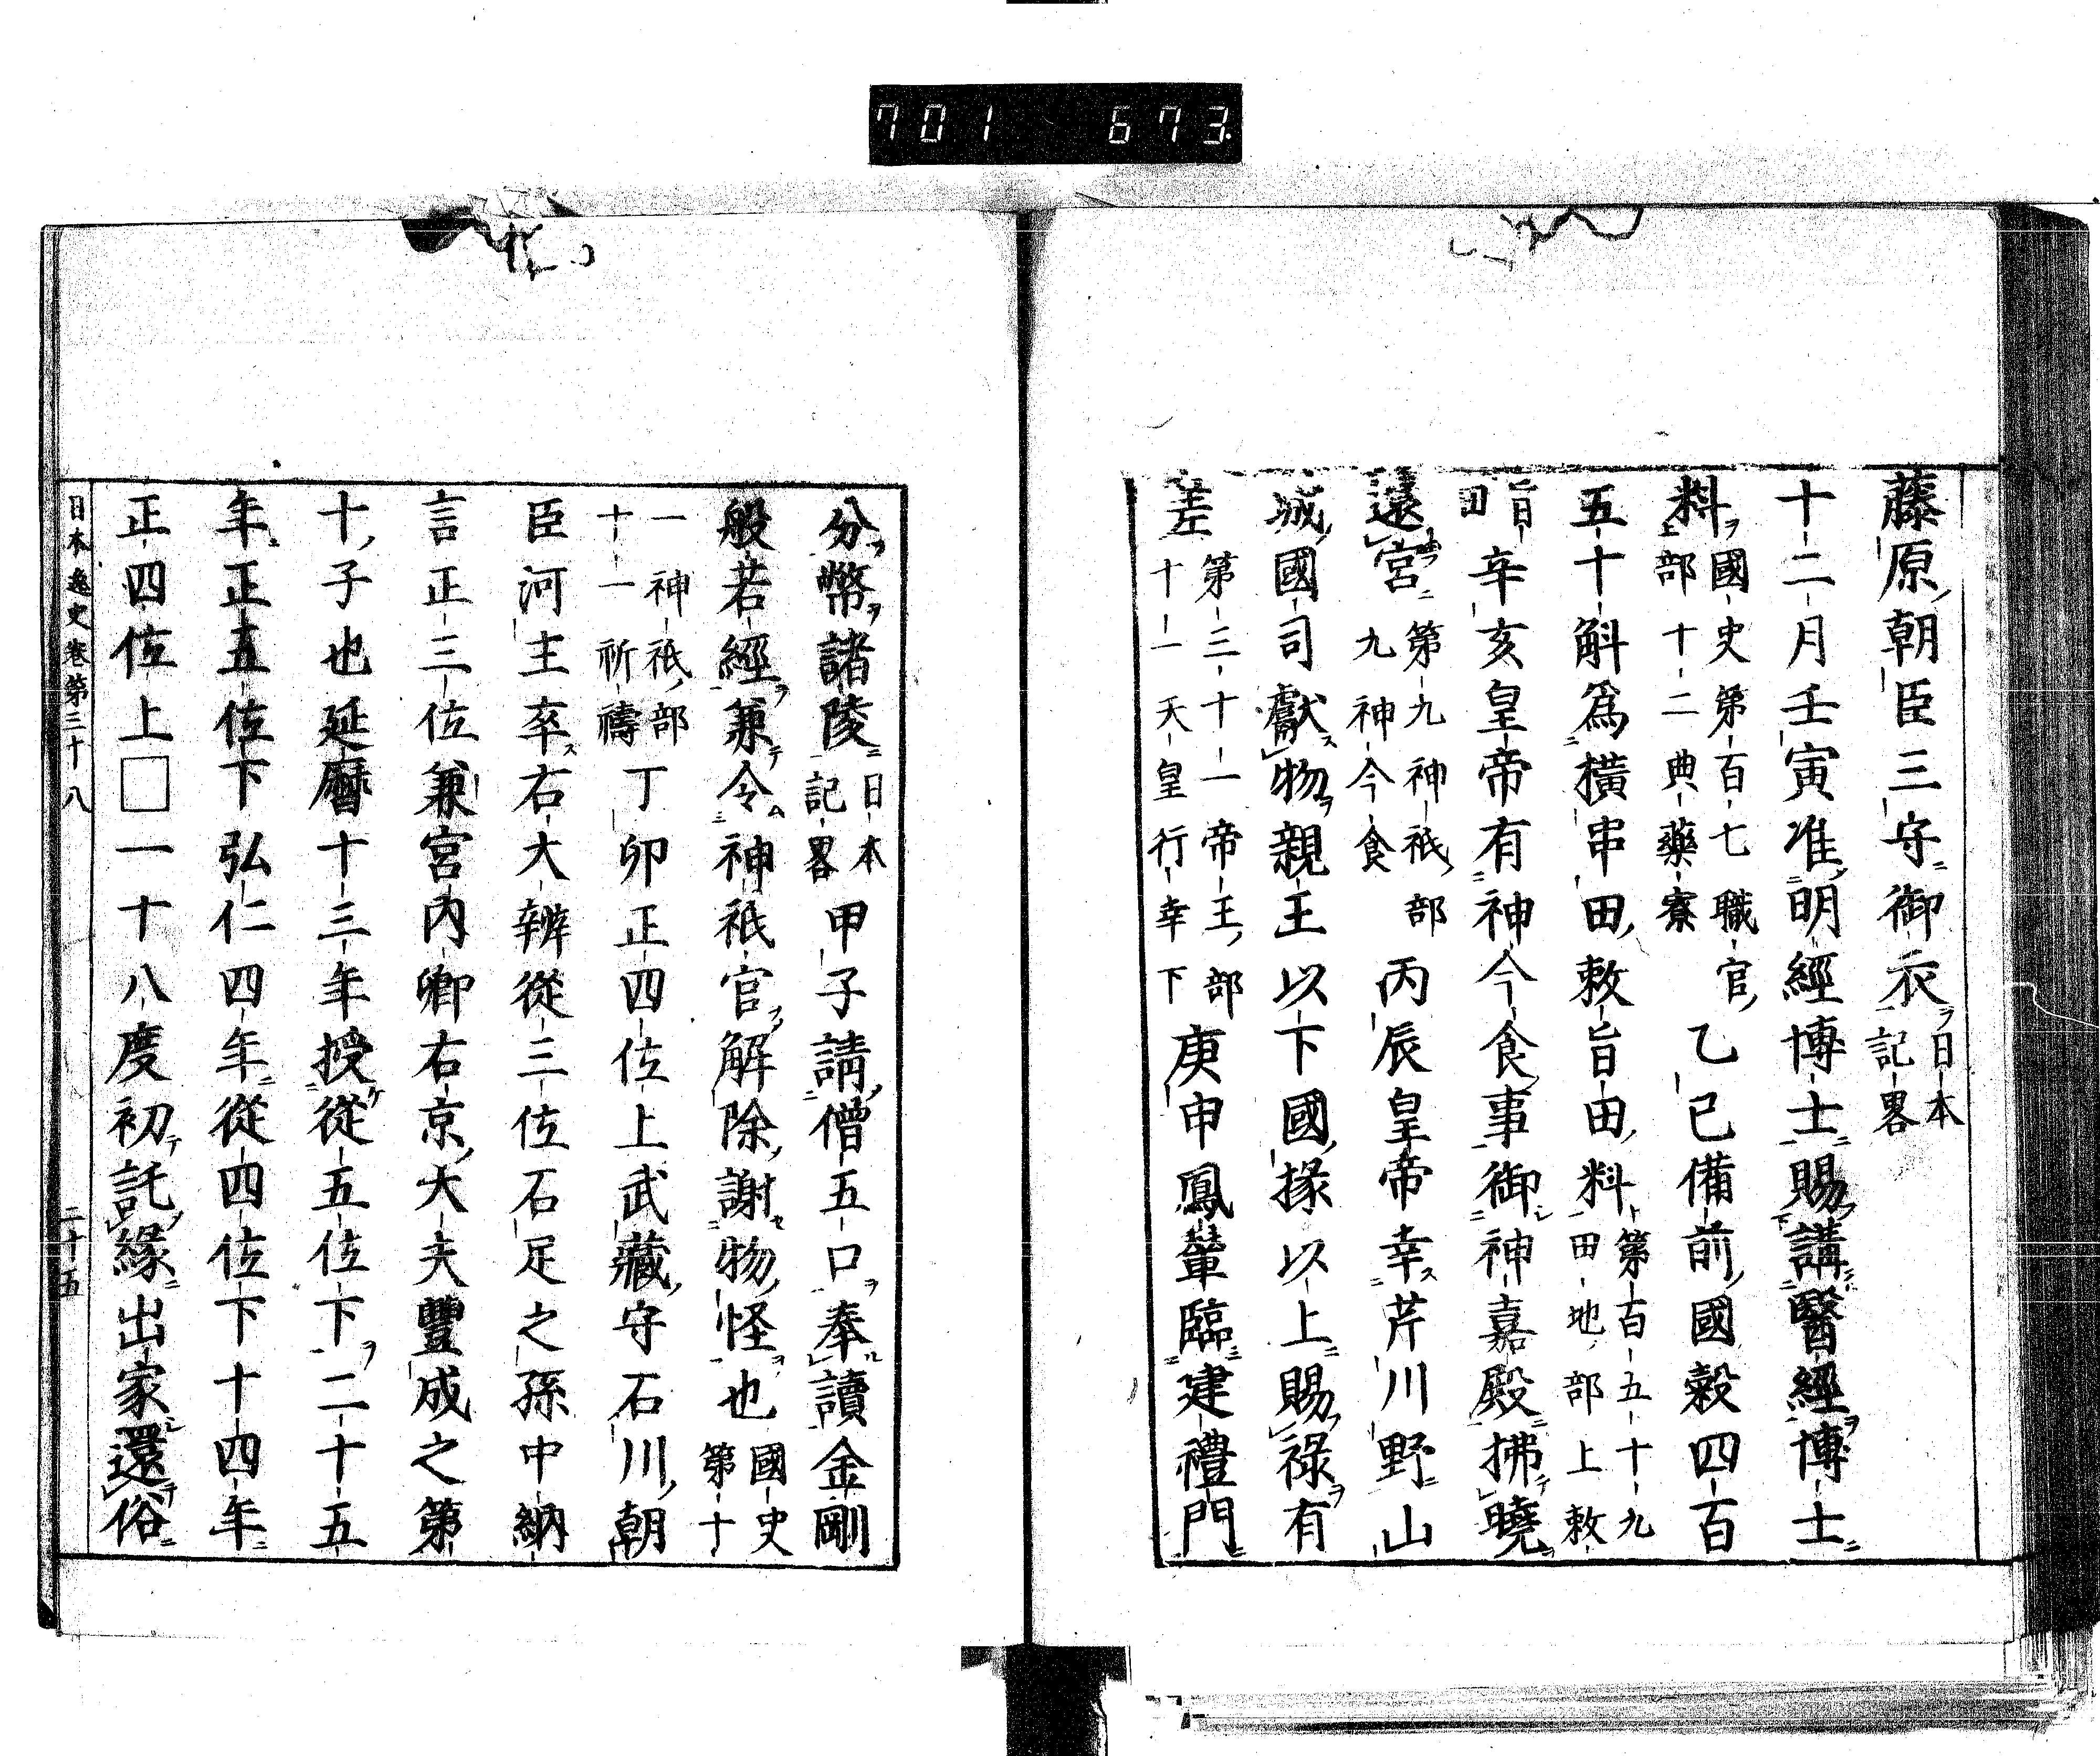 701 673
藤原朝臣三守御衣日本記畧
十二月壬寅准明經博士賜講醫經博士
料國史第百七職官部十二典藥寮乙巳備前國穀四百
五十斛爲橫串田敕旨田料第百五十九田地部上敕
旨田辛亥皇帝有神今食事御神嘉殿拂曉
還宮第九神祇部九神今食丙辰皇帝幸芹川野山
城國司獻物親王以下國掾以上賜祿有
差第三十一帝王部十一天皇行幸下庚申鳳輦臨建禮門
分幣諸陵日本記畧甲子請僧五口奉讀金剛
般若經兼令神祇官解除謝物怪也國史第十
一神祇部十一祈禱丁卯正四位上武藏守石川朝
臣河主卒右大辨從三位石足之孫中納
言正三位兼宮內卿右京大夫豐成之第
十子也延曆十三年授從五位下二十五
年正五位下弘仁四年從四位下十四年
正四位上□一十八度初託緣出家還俗
日本逸史卷第三十八 二十五